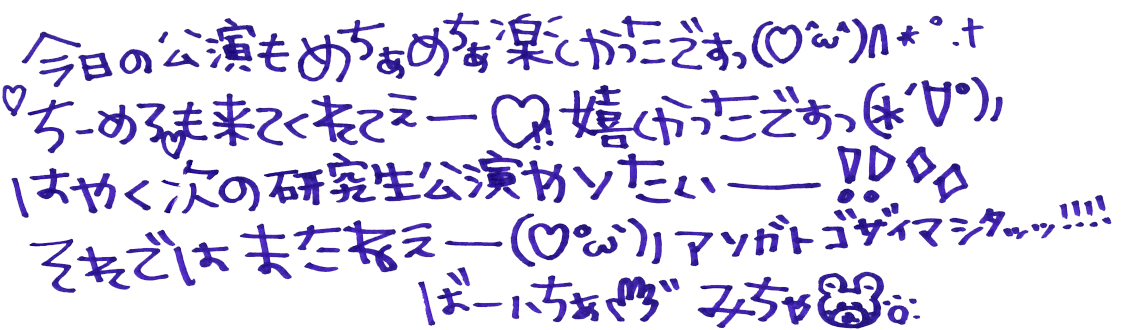 今日の公演もめちゃめちゃ楽しかったですっ(♡^ω^)∩*°.+
♡ちーめろも来てくれてえー♡!!嬉しかったですっ(*´∀°)ﾉ
はやく次の研究生公演やりたぃー!!◇◇
それではまたねえー(♡°ω`)ﾉアリガトゴザイマシタッッ!!!!
ばーいちぁ みちゃ